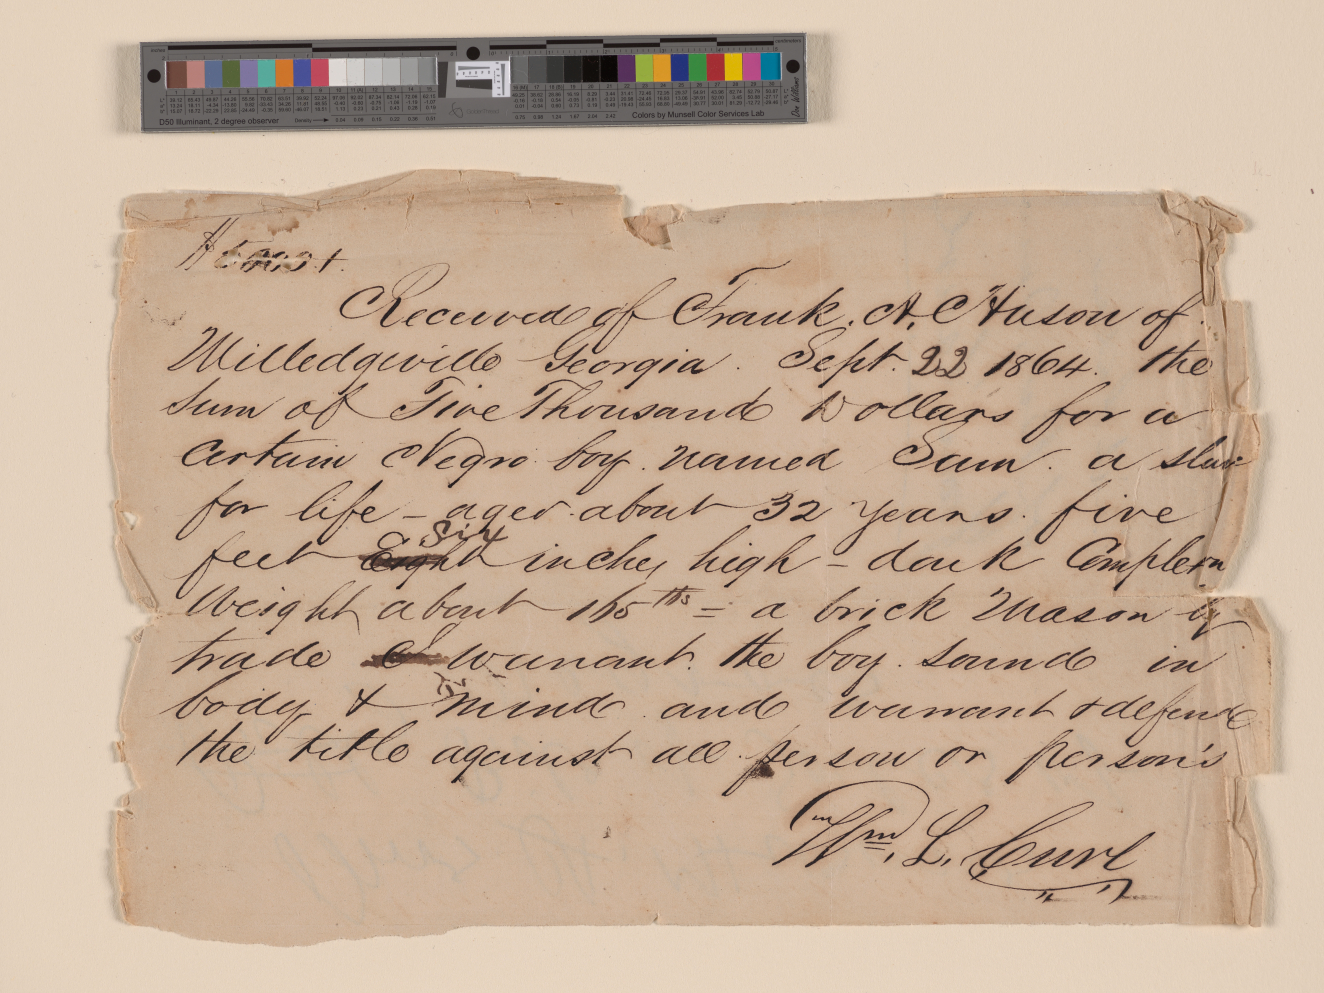 D50 Illuminant, 2 degree observer
Density
Colors by Munsell Color Services Lab
Received of Frank. A. C Huson of
Milledgeville Georgia. Sept. 22 1864. the
Sum of Five Thousand Dollars for a
certain Negro boy. named Sam. a slave
for life - aged about 32 years. five
Six
feet Eight inches high - dark Complexn
Weight about 165 lbs = a brick Mason by
trade I warrant. the boy. sound in
body & mind and warrant & defend
the title against all person or person's
Wm. L. Curl